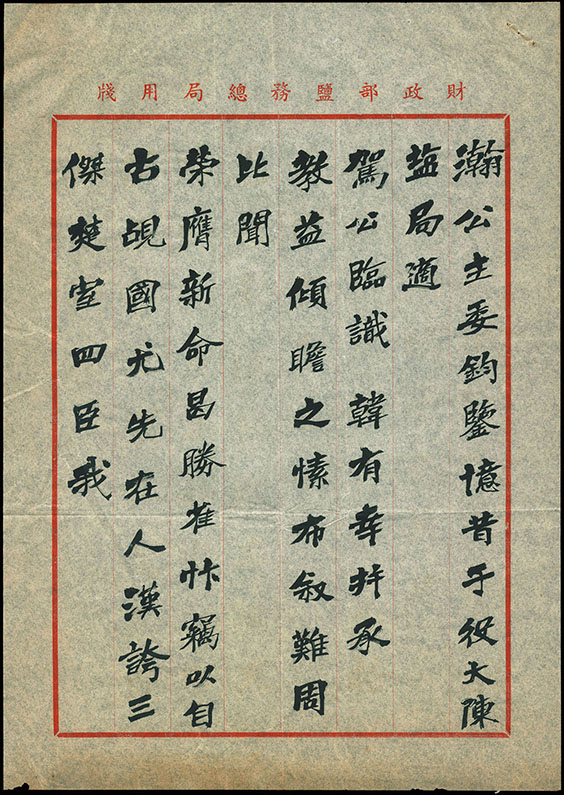 財政部鹽務總局用牋
瀚公主委鈞鑒憶昔于役大陳
盐局適
駕公臨識韓有幸并承
教益傾瞻之愫布叙難周
比聞
榮膺新命曷勝雀忭竊以自
古覘國尤先在人漢誇三
傑楚寳四臣我